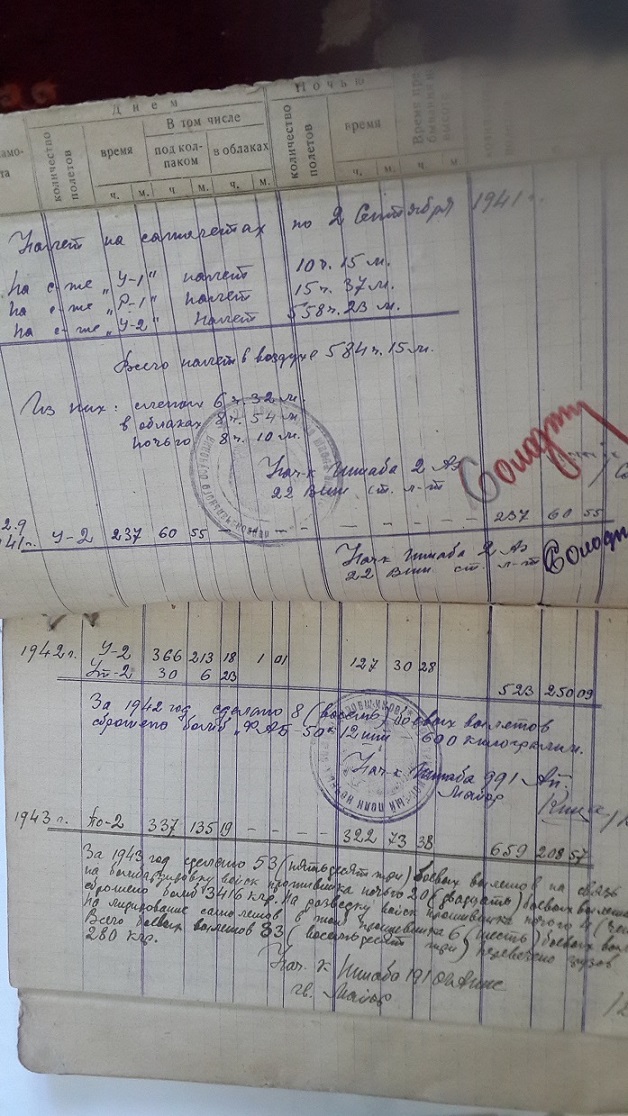 Днем
Ночью
количество полетов
время
В том числе
под колпаком
в облаках
количество полетов
время
ч. м. ч м. ч. м. ч. м. ч м
Налет на самолетах по 2 Сентября 1941 г.
На с-те „У-1" налет 10 ч. 15 м.
на с-те „Р-1" налет 15 ч. 37 м.
на с-те „У-2" налет 558 ч. 23 м.
Всего налет в воздухе 584 ч. 15 м.
Из них: слепой 6 ч. 32 м.
в облаках 8 ч. 54 м.
ночью 8 ч. 10 м.
Нач-к штаба 2 АЭ
22 Вшп ст. л-т
2.9
41 г. У-2 237 60 55 – – – – – – – – 237 60 55
Нач-к штаба 2 АЭ
22 Вшп ст. л-т
1942 г. У-2 366 213 18 1 01 127 30 28
Ут-2 30 6 23
523 250 09
За 1942 год сделано 8 (восемь) боевых вылетов
сброшено бомб „ФАБ-50" 12 шт 600 килограмм.
Нач-к штаба 991 АП.
Майор
1943 г. По-2 337 135 19 – – – – 322 73 38
659 208 57
За 1943 год сделано 53 (пятьдесят три) боевых вылетов на связь
на бомбардировку войск противника ночью 20 (двадцать) боевых вылетов
сброшено бомб 3416 кгр. На разведку войск противника ночью 4
на лидирование самолетов в тыл противника 6 (шесть) боевых
Всего боевых вылетов 83 (восемьдесят три) перевезено грузов
280 кгр.
Нач. к Штаба
гв. Майор